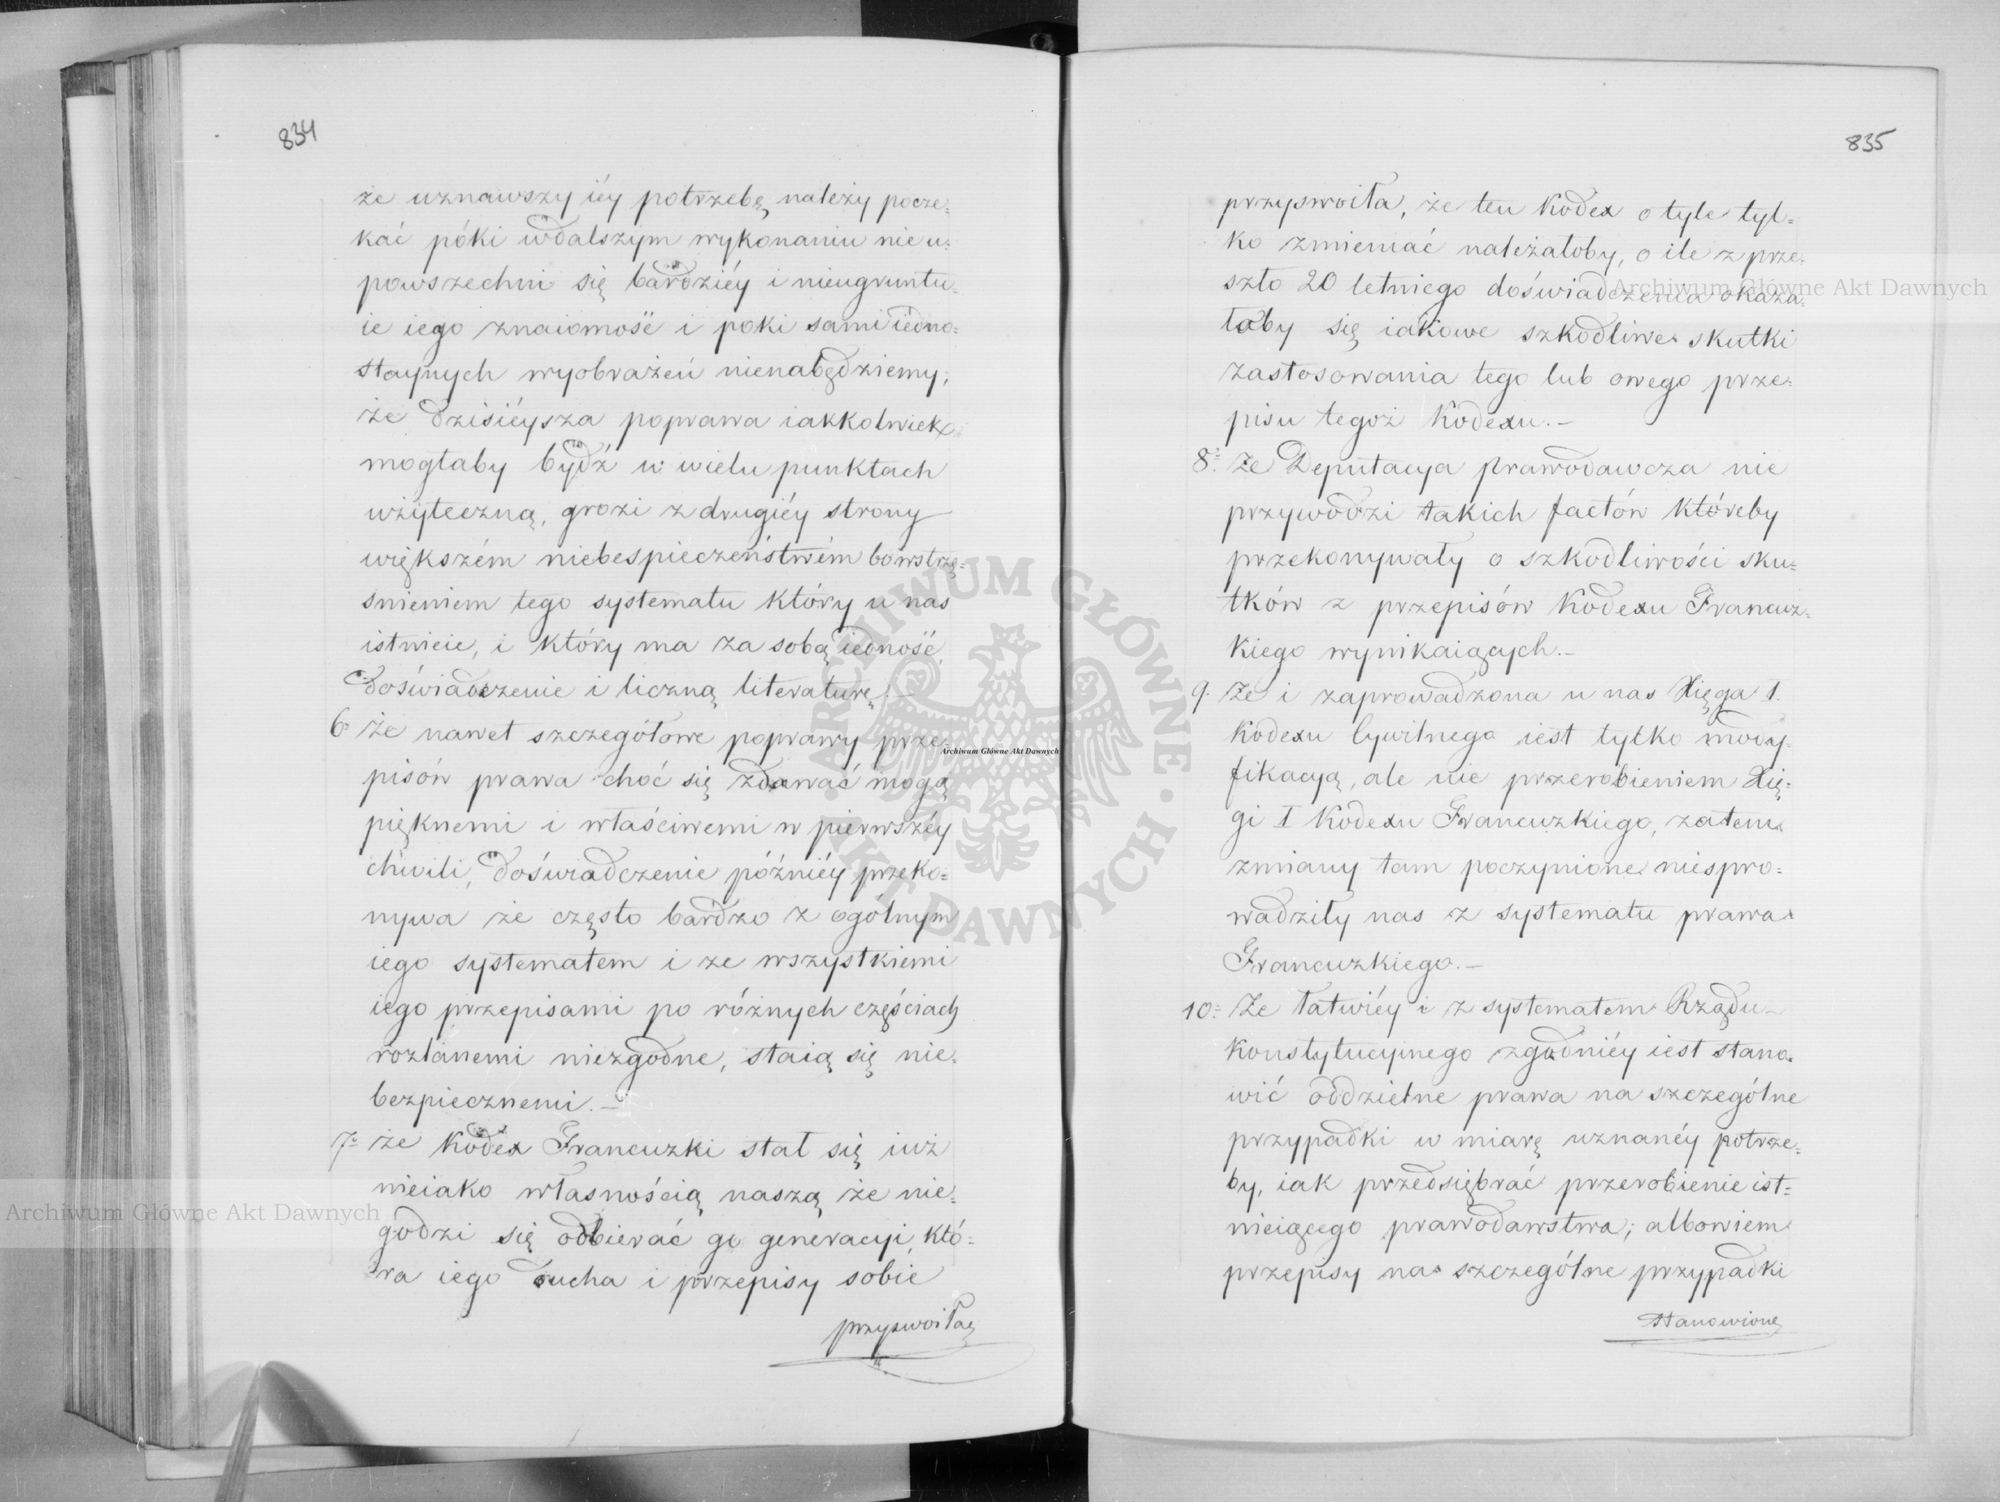 834
że uznawszy iéy potrzebę należy pocze=
kać póki wdalszym wykonaniu nie u=
powszechni się bardziéy i nieugruntu=
ie iego znaiomość i poki sami iedno=
staynych wyobrażeń nienabędziemy;
że dzisiéysza poprawa iakkolwiek
mogłaby bydź w wielu punktach
użyteczną, grozi z drugiéy strony
większém niebespieczeństwém bo wstrzą=
śnieniem tego systematu który u nas
istnieie, i który ma za sobą iedność,
doświadczenie i liczną literaturę.—
6. że nawet szczegółowe poprawy prze=
pisów prawa choć się zdawać mogą
pięknemi i właściwemi w pierwszéy
chwili, doświadczenie późniéy przeko=
nywa że często bardzo z ogolnym
iego systematem i ze wszystkiemi
iego przepisami po różnych częściach
rozlanemi niezgodne, staią się nie=
bezpiecznemi.—
7= że Kodex Francuzki stał się iuż
nieiako własnością naszą że nie=
godzi się odbierać go generacyi, któ=
ra iego ducha i przepisy sobie
przyswoiła,
835
przyswoiła, że ten Kodex o tyle tyl=
ko zmieniać należałoby, o ile z prze=
szło 20 letniego doświadczenia okaza=
łoby się iakowe szkodliwe skutki
zastosowania tego lub owego prze=
pisu tegoż Kodexu.—
8= Że Deputacya prawodawcza nie
przywodzi takich factów któreby
przekonywały o szkodliwości sku=
tków z przepisów Kodexu Francuz=
kiego wynikaiących.—
9. Że i zaprowadzona u nas Xięga I.
Kodexu Cywilnego iest tylko mody=
fikacyą, ale nie przerobieniem Xię=
gi I Kodexu Francuzkiego, zatem
zmiany tam poczynione niespro=
wadziły nas z systematu prawa
Francuzkiego.—
10= Że łatwiéy i z systematem Rządu
Konstytucyinego zgodniéy iest stano=
wić oddzielne prawa na szczególne
przypadki w miarę uznanéy potrze=
by, iak przedsiębrać przerobienie ist=
nieiącego prawodawstwa; albowiem
przepisy na szczególne przypadki
stanowione
Archiwum Główne Akt Dawnych
Archiwum Główne Akt Dawnych
Archiwum Główne Akt Dawnych
ARCHIWUM GŁÓWNE · AKT DAWNYCH ·